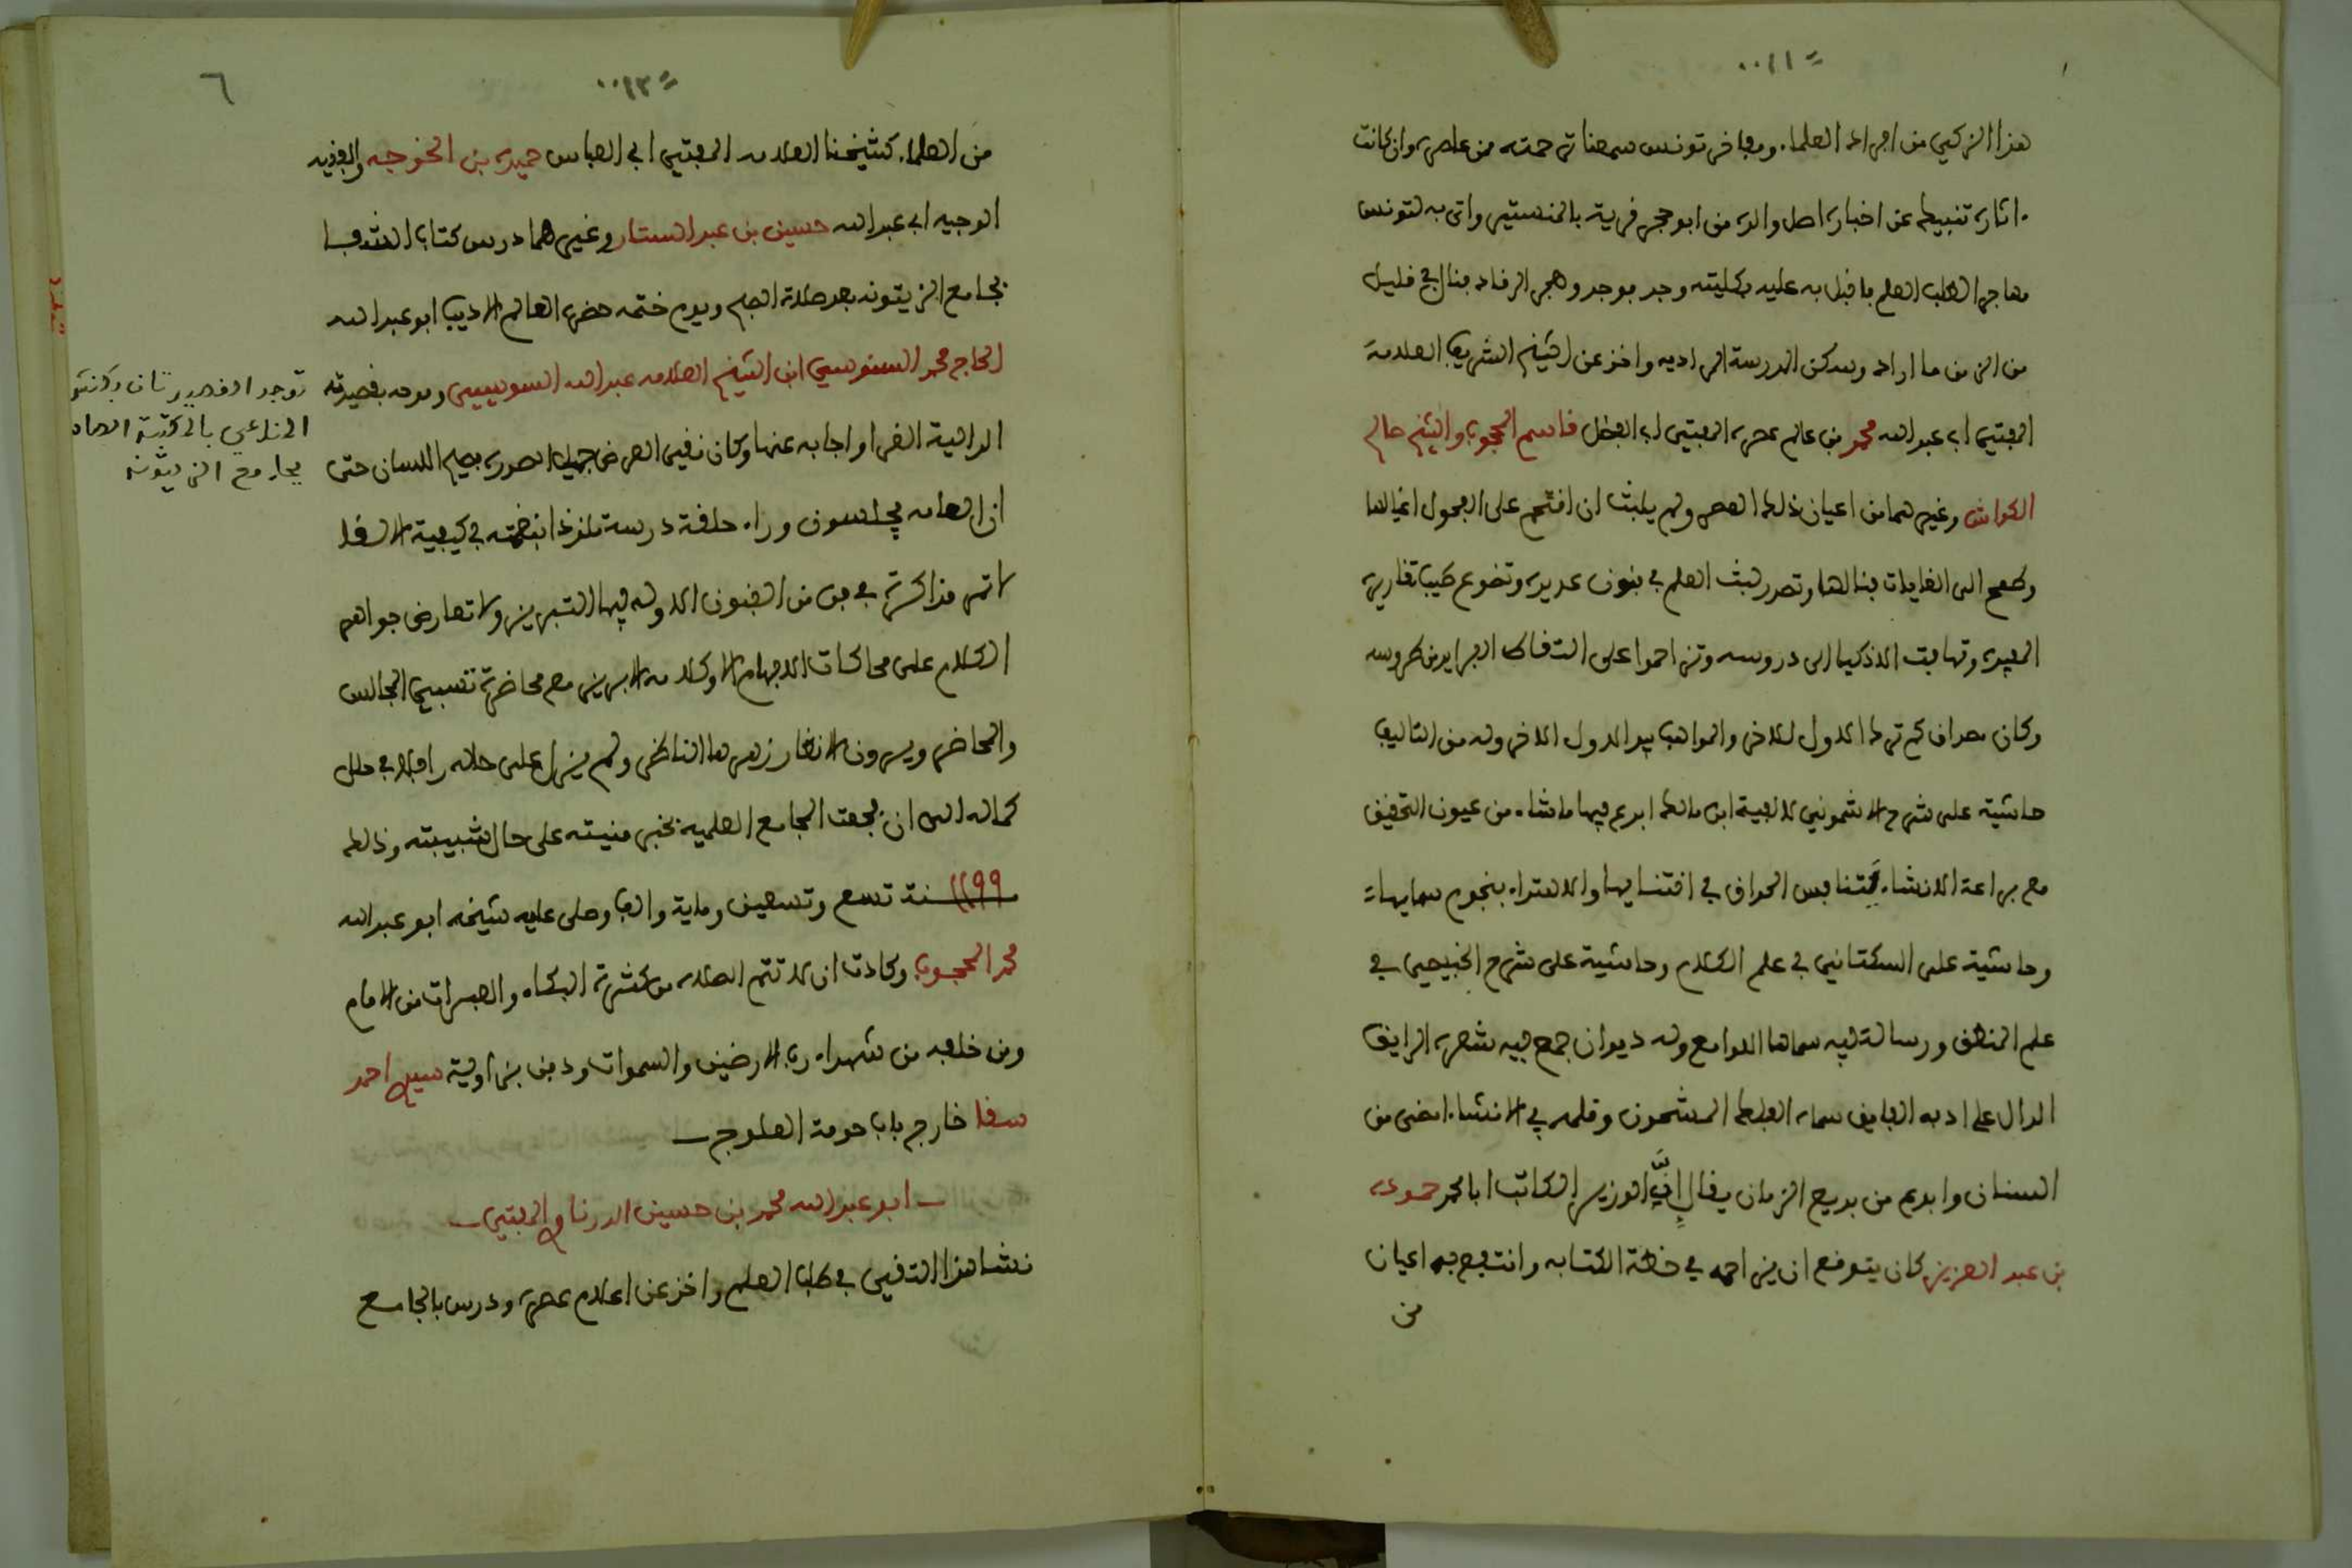 هذا الزكي من افراد العلما. ومفاخر تونس سمعنا ترجمته ممن عاصره وان كانت
اثاره تنبيك عن اخباره اصل والده من ابو حجر قرية بالمنستير واتى به لتونس
مهاجرا لطلب العلم فاقبل به عليه بكليته وجد فوجد وهجر الرقاد فنال في قليل
من الزمن ما اراد وسكن المدرسة المراديه واخذ عن الشيخ الشريف العلامة
المفتي ابي عبد الله محمد بن عالم عصره المفتي ابي الفضل قاسم المحجوب والشيخ صالح
الكواش وغيرهما من اعيان ذلك العصر ولم يلبث ان اقتحم على الفحول اغيالها
وطمح الى الغايات فنالها وتصدر لبث العلم في فنون عديده وتضوع طيب تقاريره
المفيده وتهافت الاذكيا الى دروسه وتزاحموا على التقاط الفرايد من طروسه
وكان مصداق كم ترك الاول للاخر والمواهب بيد الاول الاخر وله من التاليف
حاشية على شرح الاشموني لالفية ابن مالك ابدع فيها ما شاء من عيون التحقيق
مع براعة الانشاء يتنافس الحذاق في اقتنايها والاهتداء بنجوم سمايها
وحاشية على السكتاني في علم الكلام وحاشية على شرح الخبيصي في
علم المنطق ورسالة فيه سماها اللوامع وله ديوان جمع فيه شعره الرايق
الدال على ادبه الفايق سماه الفلك المشحون وقلمه في الانشاء امضى من
السنان وابدع من بديع الزمان يقال إنَّ الوزير الكاتب ابا محمد حموده
بن عبد العزيز كان يتوقع ان يزاحمه في خطة الكتابه وانتفع به اعيان
من
٦
من العلماء كشيخنا العلامه المفتي ابي العباس حميده بن الخوجه والفقيه
الوجيه ابي عبد الله حسين بن عبد الستار وغيرهما درس كتاب الشفا
بجامع الزيتونه بعد صلاة الصبح ويوم ختمه حضره العالم الاديب ابو عبد الله
الحاج محمد السنوسي ابن الشيخ العلامه عبد الله السوسي ومدحه بقصيدته
الدالية الغرا واجابه عنها وكان نقي العرض جميل الصوره فصيح اللسان حتى
ان العامه يجلسون وراء حلقة درسه تلذذا بنغمته في كيفية الالقا
لا تمر مذاكرته في فن من الفنون الا وله فيها التبريز ولا تعارض جواهر
الكلام على محاكات الافهام الا وكلامه الابريز مع محاضرة تنسيك المجالس
والمحاضر ويسرون الانظار زهرها الناظر ولم يزل على حاله رافلا في حلل
كماله الى ان فجعت المجامع العلميه بخبر منيته على حال شبيبته وذلك
١١٩٩ سنة تسع وتسعين وماية والف وصلى عليه شيخه ابو عبد الله
محمد المحجوب وكادت ان لا تتم الصلاه من كثرة البكاء والعبرات من الامام
ومن خلفه من شهداء رب الارضين والسموات ودفن بزاوية سيدي احمد
سقا خارج باب حومة العلوج
ابو عبد الله محمد بن حسين الدرناوي المفتي
نشا هذا التقي في طلب العلم واخذ عن اعلام عصره ودرس بالجامع
توجد القصيدتان
بالمكتبة
بجامع الزيتونة